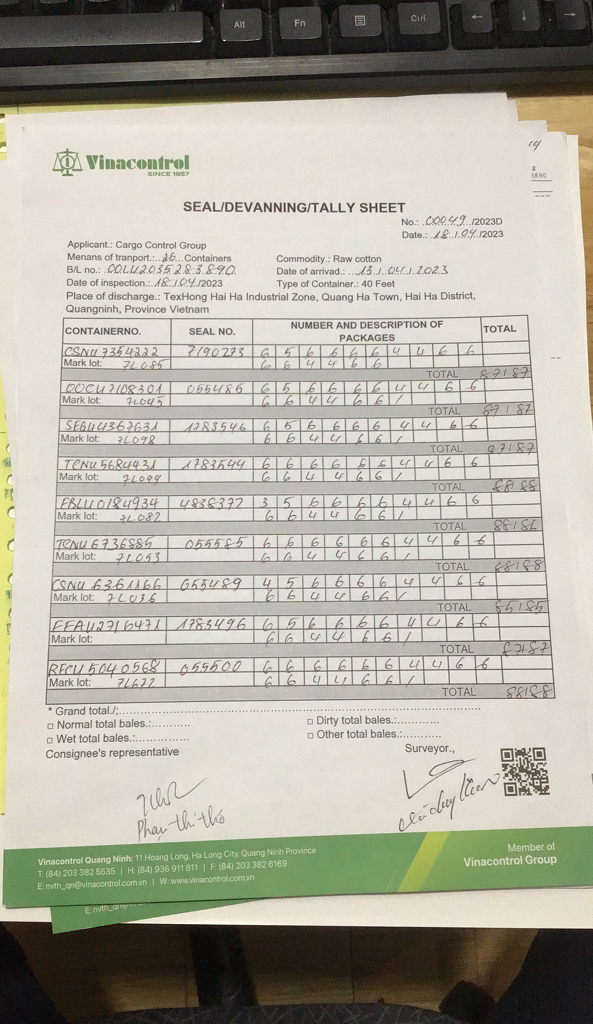 Alt
Fn
Ctrl
Vinacontrol
SINCE 1957
SEAL/DEVANNING/TALLY SHEET
No.: 00049 /2023D
Date.: 18 / 04 /2023
Applicant.: Cargo Control Group
Menans of tranport.: 26 Containers
Commodity.: Raw cotton
B/L no.: OOLU2035283890
Date of arrival.: 13 / 04 / 2023
Date of inspection.: 18 / 04 /2023
Type of Container.: 40 Feet
Place of discharge.: TexHong Hai Ha Industrial Zone, Quang Ha Town, Hai Ha District,
Quangninh, Province Vietnam
CONTAINERNO. SEAL NO. NUMBER AND DESCRIPTION OF PACKAGES TOTAL
CSNU 7354222 7190273 6 5 6 6 6 6 4 4 6 6
Mark lot: 7L085 6 6 4 4 6 6
TOTAL 87/87
OOCU7108301 055485 6 5 6 6 6 6 4 4 6 6
Mark lot: 7L045 6 6 4 4 6 6 /
TOTAL 87/87
SEGU4367631 1783546 6 5 6 6 6 6 4 4 6 6
Mark lot: 7L098 6 6 4 4 6 6 /
TOTAL 87/87
TCNU5684431 1783544 6 6 6 6 6 6 4 4 6 6
Mark lot: 7L099 6 6 4 4 6 6 /
TOTAL 88/88
FBLU0184934 4838372 3 5 6 6 6 6 4 4 6 6
Mark lot: 7L082 6 6 4 4 6 6 /
TOTAL
TCNU 6736885 055585 6 6 6 6 6 6 4 4 6 6
Mark lot: 7L053 6 6 4 4 6 6 /
TOTAL 88/88
CSNU 6361166 055489 4 5 6 6 6 6 4 4 6 6
Mark lot: 7L036 6 6 4 4 6 6 /
TOTAL 85/85
FFAU2716471 1783496 6 5 6 6 6 6 4 4 6 6
Mark lot: 6 6 4 4 6 6 /
TOTAL 87/87
RFCU 5040568 055500 6 6 6 6 6 6 4 4 6 6
Mark lot: 7L672 6 6 4 4 6 6 /
TOTAL 88/88
* Grand total./;
□ Normal total bales.:
□ Dirty total bales.:
□ Wet total bales.:
□ Other total bales.:
Consignee's representative
Surveyor.,
Phạm thị thơ
Vinacontrol Quang Ninh: 11 Hoang Long, Ha Long City, Quang Ninh Province
T: (84) 203 382 5535 | H: (84) 936 911 811 | F: (84) 203 382 6169
E: nvth_qn@vinacontrol.com.vn | W: www.vinacontrol.com.vn
Member of
Vinacontrol Group